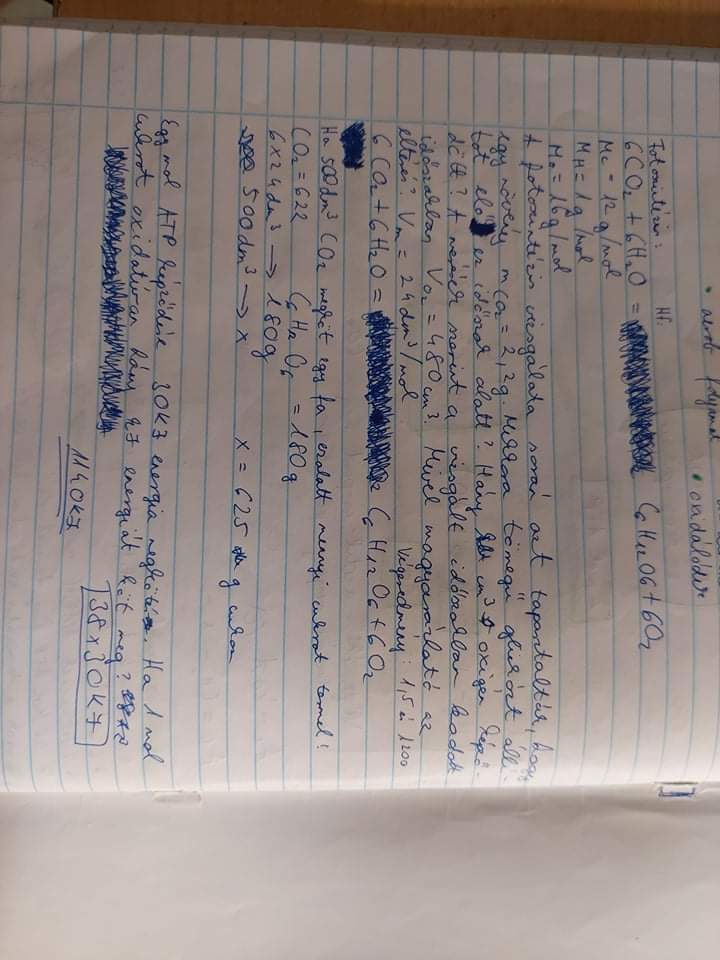 • aerob folyamat
• oxidálódik
Fotoszintézis: Hf:
6CO2 + 6H2O = C6H12O6 + 6O2
Mc = 12 g/mol
MH = 1 g/mol
Mo = 16 g/mol
A fotoszintézis vizsgálata során azt tapasztalták, hogy
egy növény mco2 = 2,2g. Mekkora tömegű glükózt állí-
tot elő ez időszak alatt? Hány cm3 oxigén képző-
dött? A mérések szerint a vizsgált időszakban leadott
időszakban Vo2 = 480 cm3. Mivel magyarázható az
eltérés? Vm = 24dm3/mol Végeredmény: 1,5 és 1200
6 CO2 + 6H2O = C6H12O6 + 6O2
Ha 500dm3 CO2 megköt egy fa, ezalatt mennyi cukrot termel?
CO2 = 622 C6H12O6 = 180g
6 x 24dm3 → 180g
500dm3 → x x = 625 g cukor
Egy mol ATP képződése 30KJ energia megkötése. Ha 1 mol
cukrot oxidatívan hány KJ energiát köt meg?
38 x 30KJ
1140KJ